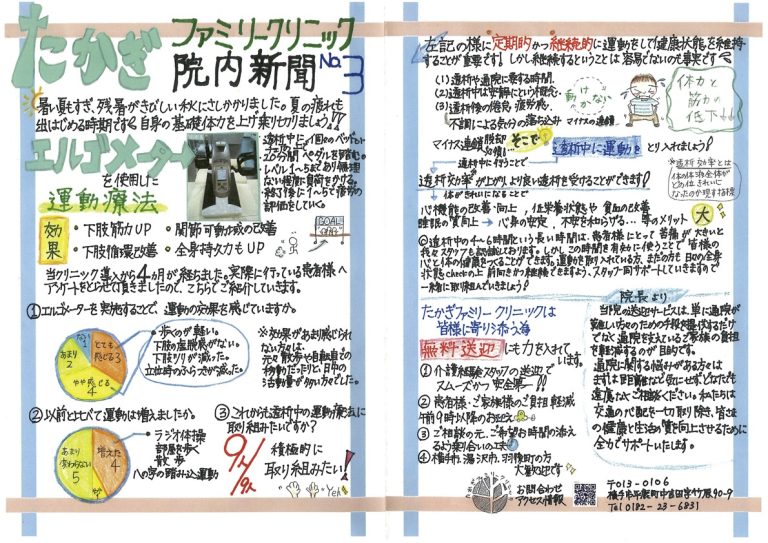 たかぎ
ファミリークリニック
院内新聞 No.3
暑い夏もすぎ、残暑がきびしい秋にさしかかりました。夏の疲れも
出はじめる時期です。自身の基礎体力を上げ乗り切りましょう!!
エルゴメーター
を使用した
運動療法
透析中に1個のペットボトル
20分間ペダルを
レベル1~5まであり無理
ない程度に負荷をかける。
終了後に1~5で疲労の
評価をしていく。
効果
・下肢筋力UP
・関節可動域の改善
・下肢循環改善
・全身持久力もUP
GOAL
当クリニック導入から4カ月が経ちました。実際に行っている患者様へ
アンケートをとらせて頂きましたので、こちらでご紹介していきます。
①エルゴメーターを実施することで、運動の効果を感じていますか。
ない 1
とても感じる 3
あまり 2
やや感じる 4
・歩くのが軽い。
下肢の虚脱感がない。
下肢つりが減った。
立位時のふらつきが減った。
※効果があまり感じられ
ない方は、
元々散歩や自転車での
移動だったりと、日中の
活動量が多い方でした。
②以前とくらべて運動は増えましたか。
増えた 4
あまり変わらない 5
やや
・ラジオ体操
部屋を歩く
散歩
への字の踏み込み運動
③これからも透析中の運動療法に
取り組みたいですか?
9人/9人
積極的に
取り組みたい!
Yeh!
左記の様に定期的かつ継続的に運動をして健康状態を維持
することが重要です!しかし継続するということは容易でないのも事実です
(1)透析や通院に要する時間。
(2)透析中は安静にという概念。
(3)透析後の倦怠、疲労感。
不調による気分の落ち込み マイナスの連鎖
動けない
体力と筋力の低下↓↓
マイナス連鎖脱却
そこで
透析中に運動を
とり入れましょう!
透析中に行うことで
透析効率が上がりより良い透析を受けることができます!
※透析効率とは
体の体液全体が
どの位きれいに
なったのか現する様
体がきれいになることで
心肺機能の改善・向上、低栄養状態や貧血の改善
睡眠の質向上→心身の安定、不安を和らげる…等のメリット大
◎透析中の4~6時間という長い時間は、患者様にとって苦痛が大きいと
我々スタッフも認識しております。しかし、この時間を有効に使うことで皆様の
心と体の健康をつくることができます。運動を取り入れている方、またの方も日々の全身
状態checkの上前向きかつ継続できますよう、スタッフ一同サポートしていきますので
一緒に取り組んでいきましょう!
たかぎファミリークリニックは
皆様に寄り添う為
無料送迎にも力を入れて
います。
①介護経験スタッフの送迎で
スムーズかつ安全第一!!
②患者様・ご家族様のご負担軽減
午前9時以降のお迎え
③ご相談の元、ご希望お時間の添え
るよう乗り合いの工夫
④横手市、湯沢市、羽後町の方
大歓迎です
院長より
当院の送迎サービスは、単に通院が
難しい方のための手段を提供するだけ
でなく通院を支えているご家族の負担
を軽減するのが目的です。
通院に関する悩みがある方々は
まずは見目離など気にせず、どなたでも
遠慮なくご相談ください。私たちは
交通の心配を一切取り除き、皆さま
の健康と生活の質を向上させるために
全力でサポートいたします。
お問合わせ
アクセス情報
〒013-0106
横手市平鹿町中吉田字竹原90-9
Tel 0182-23-6831